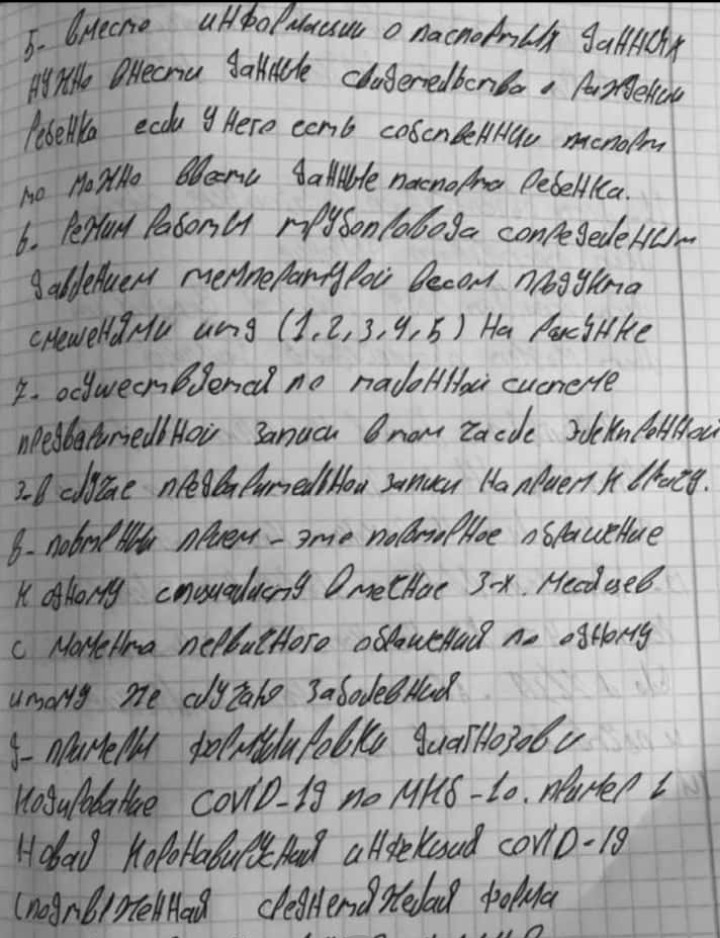 5- вместо информации о паспортных данних
нужно внести данные свидетельства о рождении
ребенка если у него есть собственний паспорт
то можно ввести данные паспорта ребенка.
6. Режим работы трубопровода сопределеным
давлением температурой весом продукта
смешенями итд (1,2,3,4,5) на рисунке
7- осуществляется по талонной системе
предварительной записи в том числе электронной
3-в случае предварительной записи на прием к врачу.
8- повторный прием - это повторное обращение
к одному специалисту в течение 3-х. месяцев
с момента первичного обращения по одному
итому же случаю заболевания
9- примеры формулировки диагнозов и
кодирование COVID-19 по МКБ-10. пример 1
Новая коронавирусная инфекция COVID-19
(подтвержденная среднетяжелая форма